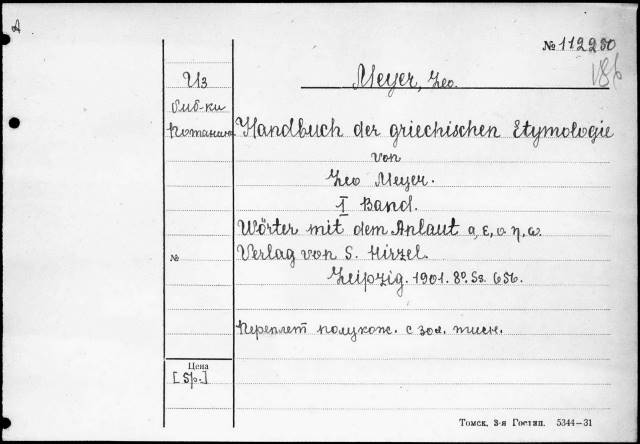 А
№ 112250
186
Из
биб-ки
Потанина
Meyer, Leo.
Handbuch der griechischen Etymologie
von
Leo Meyer.
I Band.
Wörter mit dem Anlaut α, ε, ο, η, ω.
№
Verlag von S. Hirzel.
Leipzig. 1901. 8º. Ss. 656.
Переплет полукож. с зол. тисн.
Цена
[5р.]
Томск. 3-я Гостип. 5344—31